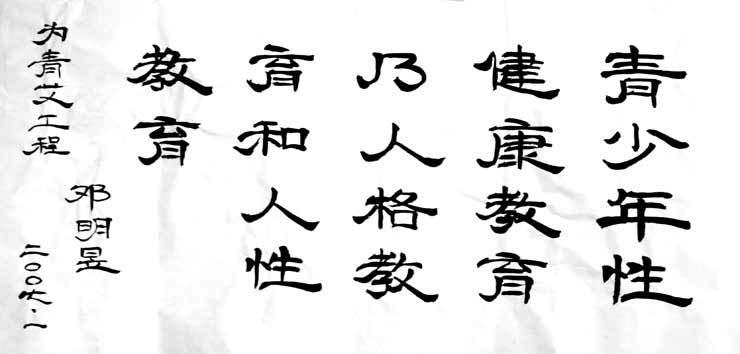 青少年性
健康教育
乃人格教
育和人性
教育
为青艾工程
邓明昱
二〇〇九.一